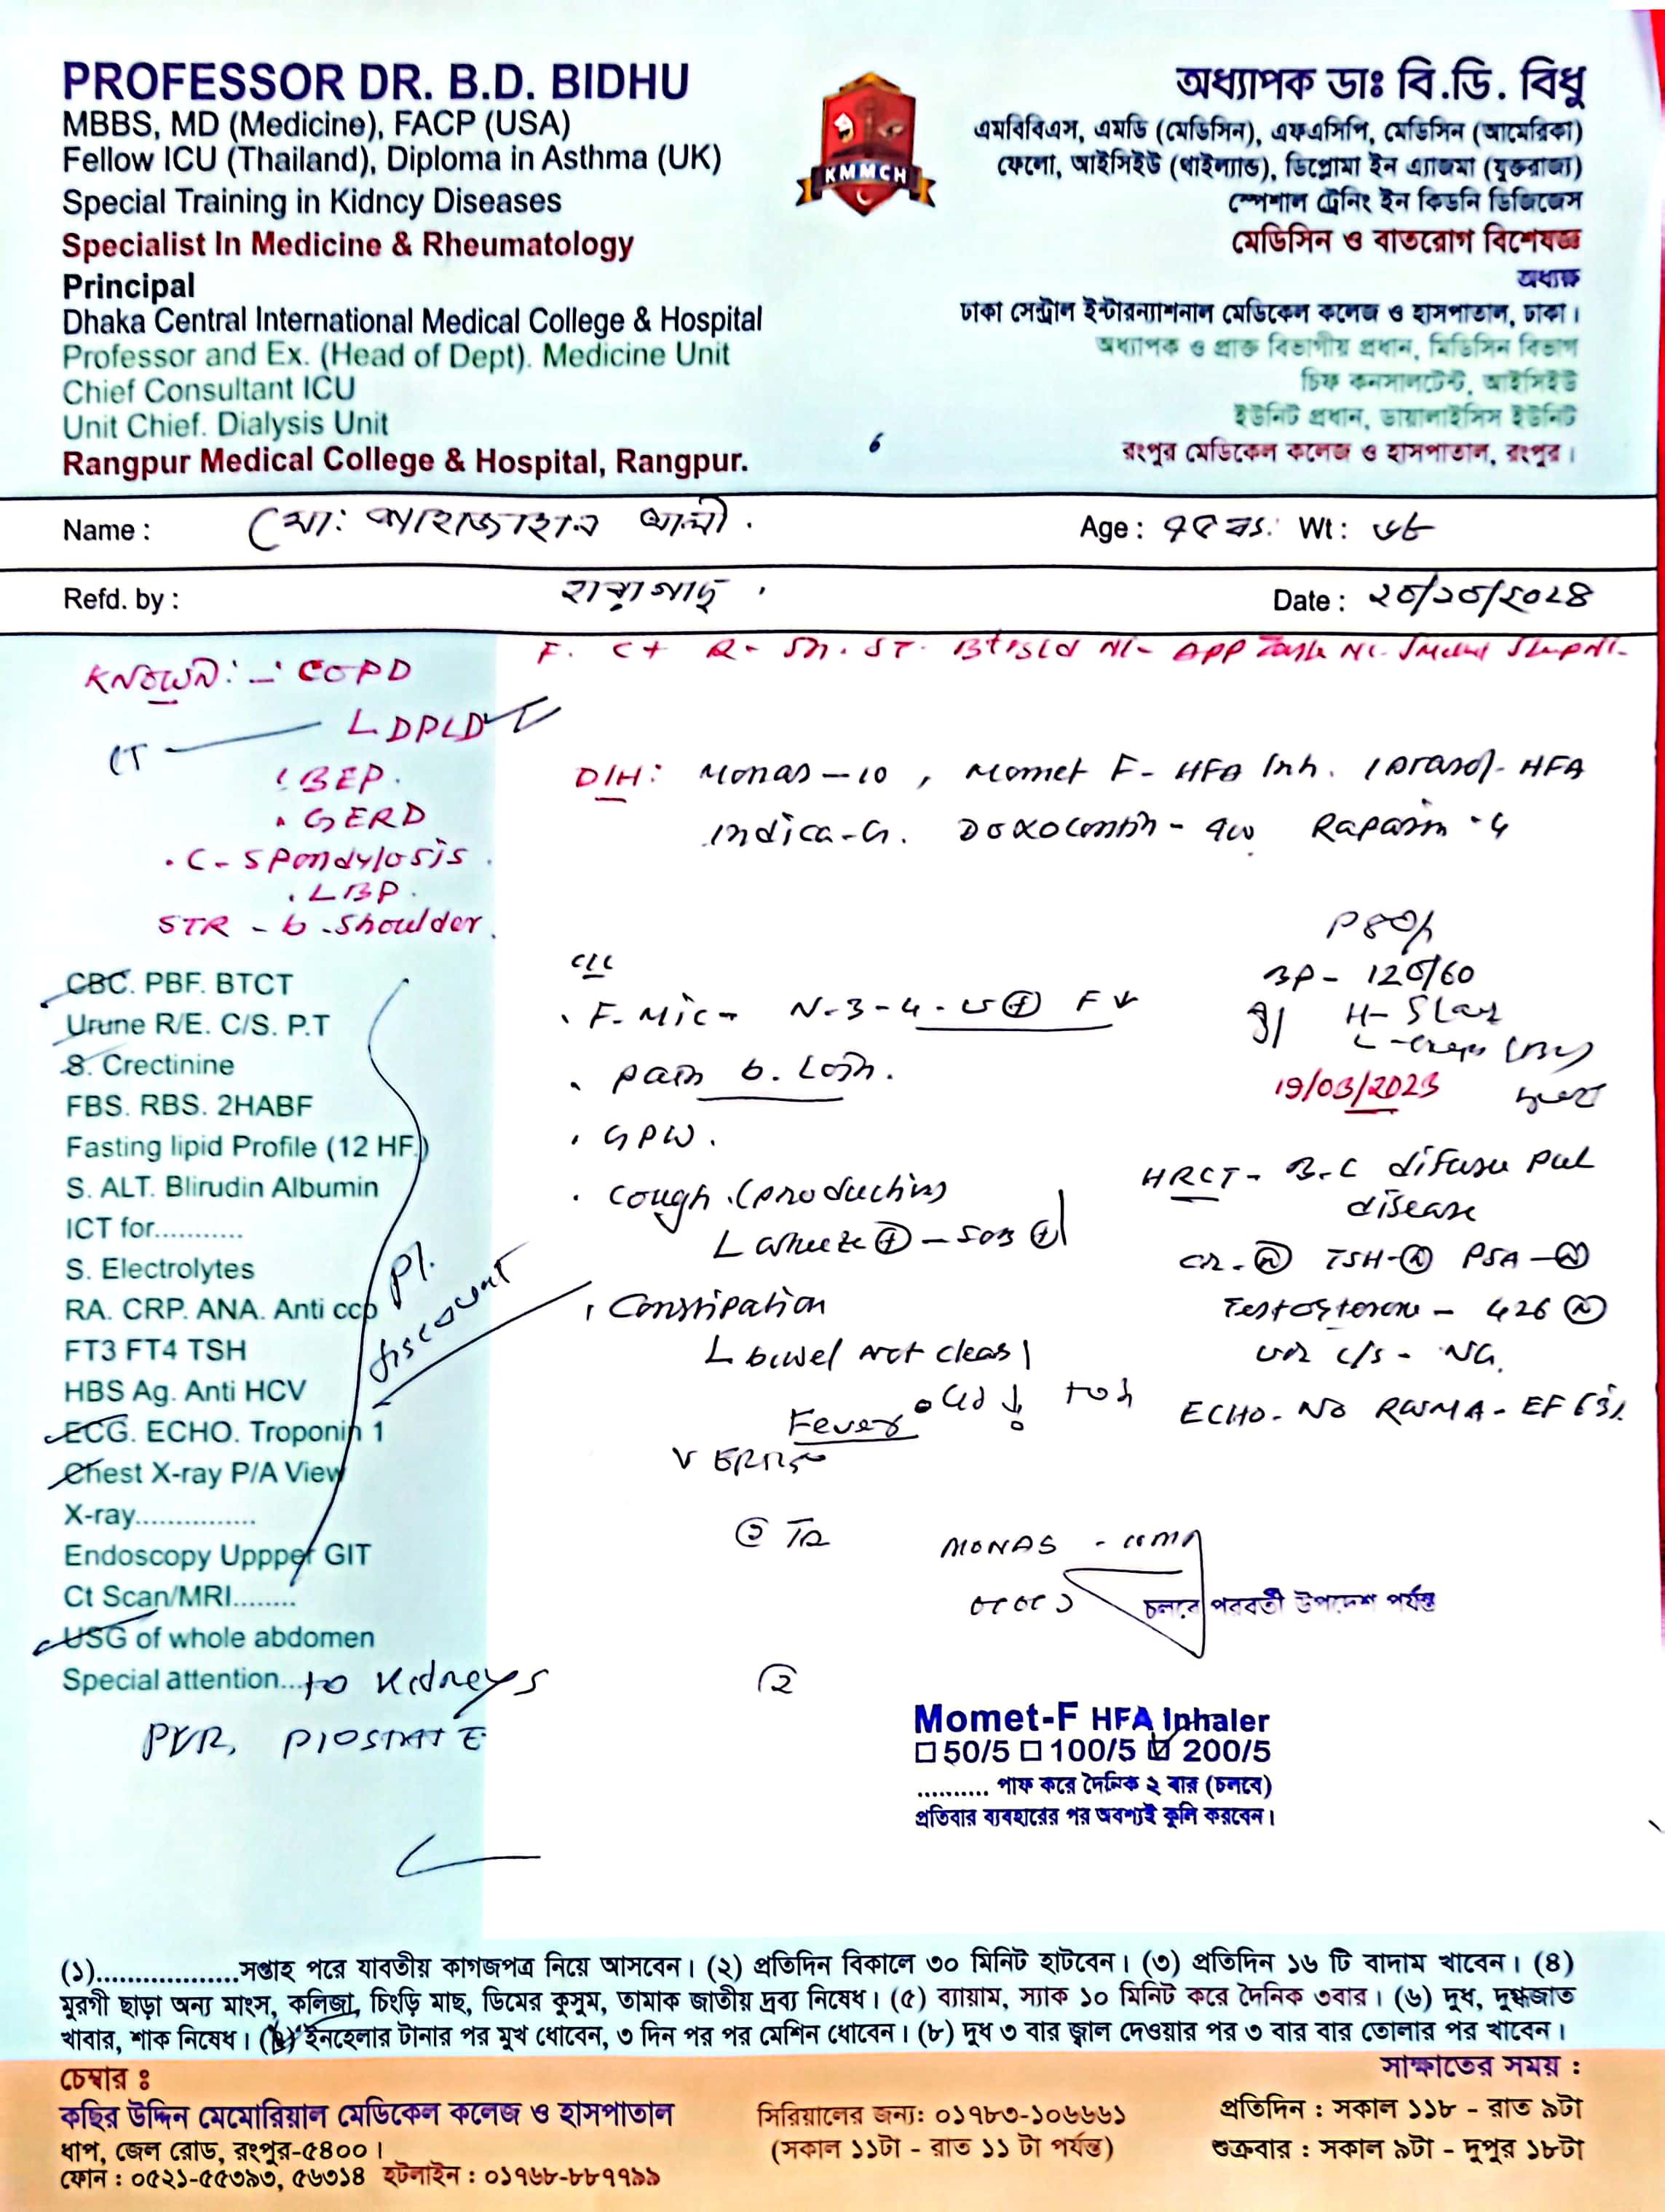 PROFESSOR DR. B.D. BIDHU
MBBS, MD (Medicine), FACP (USA)
Fellow ICU (Thailand), Diploma in Asthma (UK)
Special Training in Kidncy Diseases
Specialist In Medicine & Rheumatology
Principal
Dhaka Central International Medical College & Hospital
Professor and Ex. (Head of Dept). Medicine Unit
Chief Consultant ICU
Unit Chief. Dialysis Unit
Rangpur Medical College & Hospital, Rangpur.
KMMCH
অধ্যাপক ডাঃ বি.ডি. বিধু
এমবিবিএস, এমডি (মেডিসিন), এফএসিপি, মেডিসিন (আমেরিকা)
ফেলো, আইসিইউ (থাইল্যান্ড), ডিপ্লোমা ইন এ্যাজমা (যুক্তরাজ্য)
স্পেশাল ট্রেনিং ইন কিডনি ডিজিজেস
মেডিসিন ও বাতরোগ বিশেষজ্ঞ
অধ্যক্ষ
ঢাকা সেন্ট্রাল ইন্টারন্যাশনাল মেডিকেল কলেজ ও হাসপাতাল, ঢাকা।
অধ্যাপক ও প্রাক্ত বিভাগীয় প্রধান, মিডিসিন বিভাগ
চিফ কনসালটেন্ট, আইসিইউ
ইউনিট প্রধান, ডায়ালাইসিস ইউনিট
রংপুর মেডিকেল কলেজ ও হাসপাতাল, রংপুর।
Name : মো: শাহজাহান আলী. Age : ৭৫ Wt : ৬৮
Refd. by : Date : ২০/১০/২০২৪
KNOWN: - COPD
L DPLD
CT
BEP.
GERD
C- Spondylosis
LBP.
STR - b. shoulder
D/H: Monas-10, Momet F- HFA Inh. Iprasol- HFA
Indica-G. Doxocontin - 400 Rapasin - 4
CBC. PBF. BTCT
Urune R/E. C/S. P.T
S. Crectinine
FBS. RBS. 2HABF
Fasting lipid Profile (12 HF.)
S. ALT. Blirudin Albumin
ICT for...........
S. Electrolytes
RA. CRP. ANA. Anti ccp
FT3 FT4 TSH
HBS Ag. Anti HCV
ECG. ECHO. Troponin 1
Chest X-ray P/A View
X-ray...............
Endoscopy Uppper GIT
Ct Scan/MRI........
USG of whole abdomen
Special attention... to Kidneys
PVR, PROSTATE
Pl. discount
C/C
F. Mic- N-3-4
Pain b. Loin.
GPW.
Cough (productive)
L wheeze ⊕ - SOB ⊕
Constipation
L bowel not clear
Fever
BP- 120/60
19/03/2023
HRCT- B-C difuse pul
disease
Cr- Ⓝ TSH-Ⓝ PSA-Ⓝ
Testosterone - 426 Ⓝ
C/S - NG.
ECHO- No RWMA- EF 63%
MONAS - 10
চলবে পরবর্তী উপদেশ পর্যন্ত
Momet-F HFA Inphaler
50/5 100/5 200/5
.......... পাফ করে দৈনিক ২ বার (চলবে)
প্রতিবার ব্যবহারের পর অবশ্যই কুলি করবেন।
(১)..................সপ্তাহ পরে যাবতীয় কাগজপত্র নিয়ে আসবেন। (২) প্রতিদিন বিকালে ৩০ মিনিট হাটবেন। (৩) প্রতিদিন ১৬ টি বাদাম খাবেন। (৪)
মুরগী ছাড়া অন্য মাংস, কলিজা, চিংড়ি মাছ, ডিমের কুসুম, তামাক জাতীয় দ্রব্য নিষেধ। (৫) ব্যায়াম, স্যাক ১০ মিনিট করে দৈনিক ৩বার। (৬) দুধ, দুগ্ধজাত
খাবার, শাক নিষেধ। (৭) ইনহেলার টানার পর মুখ ধোবেন, ৩ দিন পর পর মেশিন ধোবেন। (৮) দুধ ৩ বার জ্বাল দেওয়ার পর ৩ বার বার তোলার পর খাবেন।
চেম্বার ঃ
কছির উদ্দিন মেমোরিয়াল মেডিকেল কলেজ ও হাসপাতাল
ধাপ, জেল রোড, রংপুর-৫৪০০।
ফোন : ০৫২১-৫৫৩৯৩, ৫৬৩১৪ হটলাইন : ০১৭৬৮-৮৮৭৭৯৯
সিরিয়ালের জন্য: ০১৭৮৩-১০৬৬৬১
(সকাল ১১টা - রাত ১১ টা পর্যন্ত)
সাক্ষাতের সময় :
প্রতিদিন : সকাল ১১৮ - রাত ৯টা
শুক্রবার : সকাল ৯টা - দুপুর ১৮টা